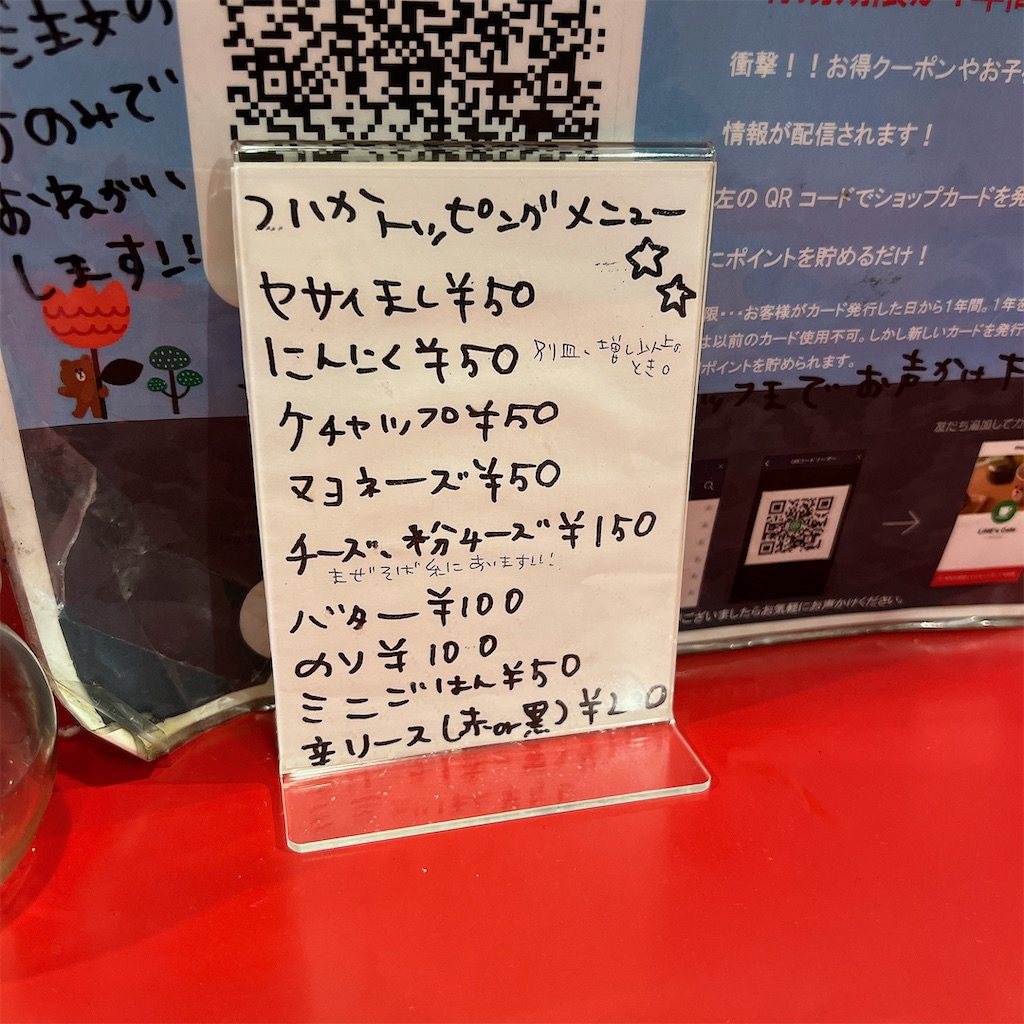 ご注文の
方のみで
おねがい
します!!
衝撃！！お得クーポンやお子
情報が配信されます！
左の QR コードでショップカードを発
にポイントを貯めるだけ！
限･･･お客様がカード発行した日から1年間。1年を
は以前のカード使用不可。しかし新しいカードを発行
ポイントを貯められます。
ッフまでお声かけ下
友だち追加してカ
ございましたらお気軽にお声かけください。
ついかトッピングメニュー
ヤサイまし¥50
にんにく¥50 別皿、増し以上の
とき。
ケチャップ¥50
マヨネーズ¥50
チーズ、粉チーズ¥150
まぜそば系にあいます!!!
バター¥100
のり¥100
ミニごはん¥50
辛ソース(赤or黒)¥200